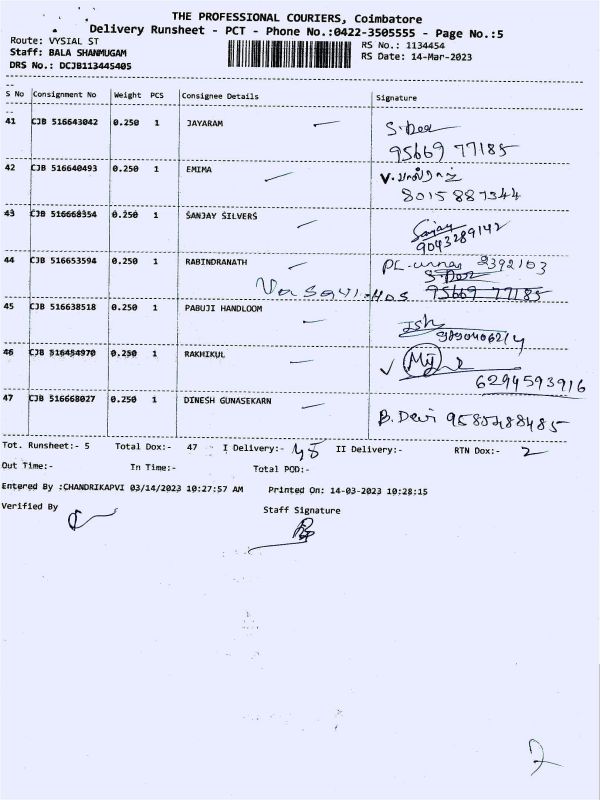 THE PROFESSIONAL COURIERS, Coimbatore
Delivery Runsheet - PCT - Phone No.:0422-3505555 - Page No.:5
Route: VYSIAL ST
RS No.: 1134454
Staff: BALA SHANMUGAM
RS Date: 14-Mar-2023
DRS No.: DCJB113445405
S No Consignment No Weight PCS Consignee Details Signature
41 CJB 516643042 0.250 1 JAYARAM
95669 77185
42 CJB 516640493 0.250 1 EMIMA
43 CJB 516668354 0.250 1 SANJAY SILVERS Sanjay
9043289142
44 CJB 516653594 0.250 1 RABINDRANATH
95669 77185
45 CJB 516638518 0.250 1 PABUJI HANDLOOM
46 CJB 516484970 0.250 1 RAKHIKUL
6294593916
47 CJB 516668027 0.250 1 DINESH GUNASEKARN B. Devi
Tot. Runsheet:- 5 Total Dox:- 47 I Delivery:- 45 II Delivery:- RTN Dox:- 2
Out Time:- In Time:- Total POD:-
Entered By :CHANDRIKAPVI 03/14/2023 10:27:57 AM Printed On: 14-03-2023 10:28:15
Verified By Staff Signature
2